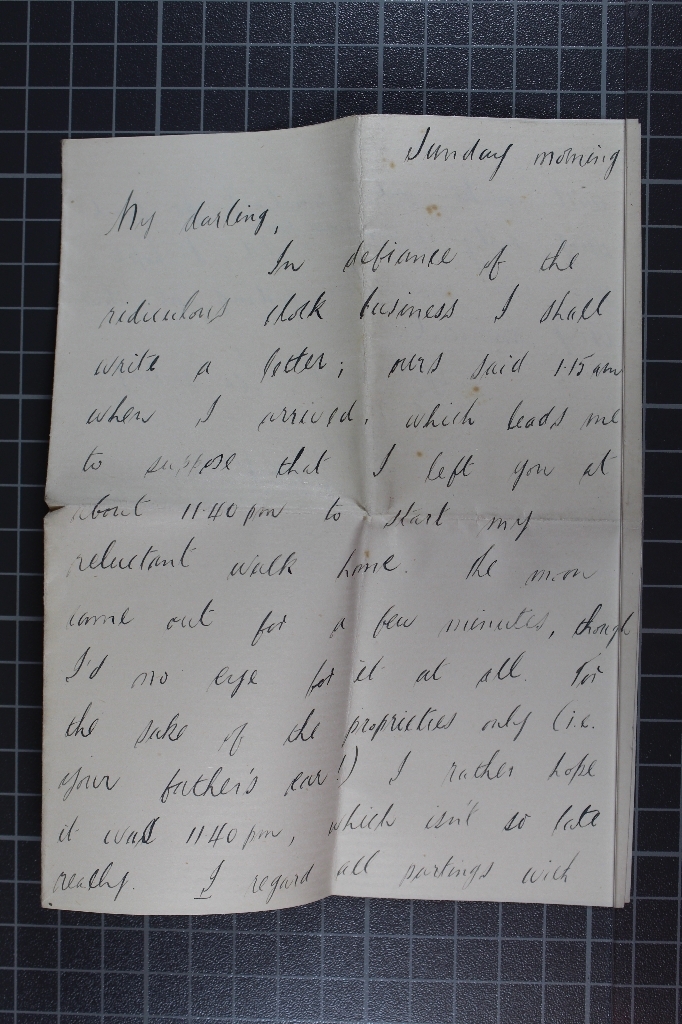 Sunday morning
My darling,
In defiance of the
ridiculous clock business I shall
write a letter; ours said 1.15 am
when I arrived, which leads me
to suppose that I left you at
about 11.40 pm to start my
reluctant walk home. The moon
came out for a few minutes, though
I'd no eye for it at all. For
the sake of the proprieties only (i.e.
your father's ear!) I rather hope
it was 11.40 pm, which isn't so late
really. I regard all partings with